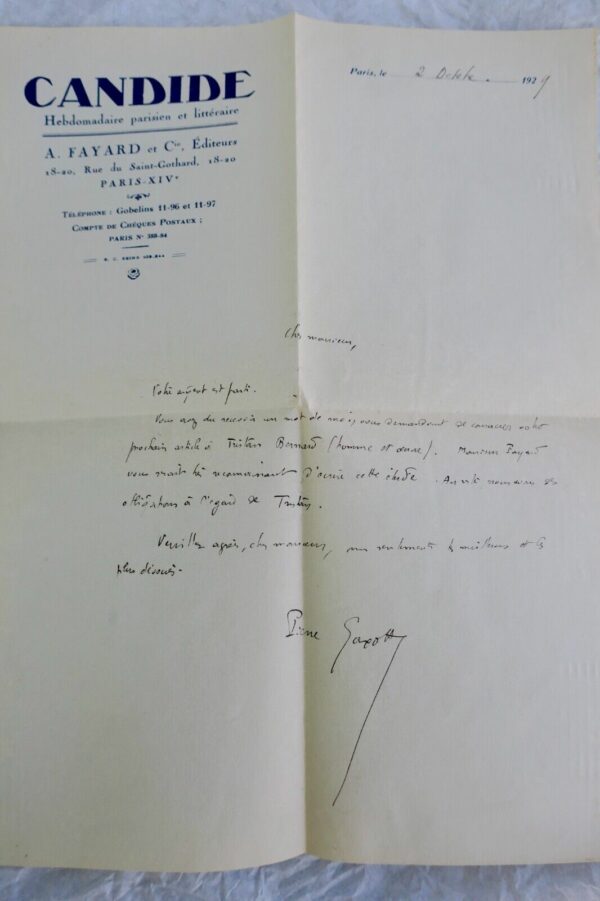 CANDIDE
Hebdomadaire parisien et littéraire
A. FAYARD et Cie, Éditeurs
18-20, Rue du Saint-Gothard, 18-20
PARIS-XIVe
TÉLÉPHONE : Gobelins 11-96 et 11-97
COMPTE DE CHÈQUES POSTAUX :
PARIS No 388-84
Paris, le 2 Octobre 1929
Cher monsieur,
Votre argent est parti.
Vous avez dû recevoir un mot de moi vous demandant de consacrer votre
prochain article à Tristan Bernard (homme et œuvre). Monsieur Fayard
vous serait très reconnaissant d'écrire cette étude. nous avons des
obligations à l'égard de Tristan.
Veuillez agréer, cher monsieur, mes sentiments les meilleurs et les
plus dévoués.
Pierre Gaxotte